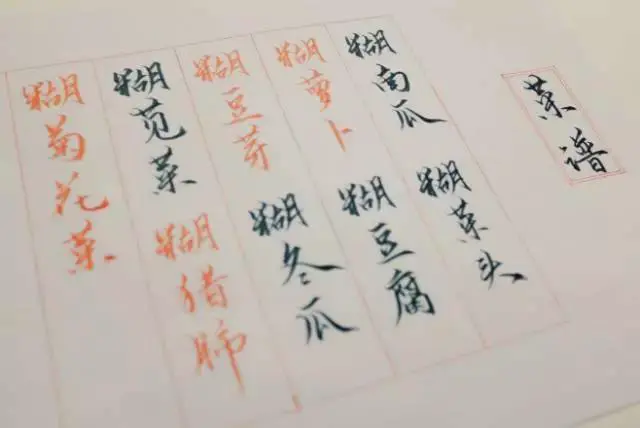 菜谱
糊南瓜
糊菜头
糊萝卜
糊豆腐
糊豆芽
糊冬瓜
糊苋菜
糊猪肺
糊菊花菜